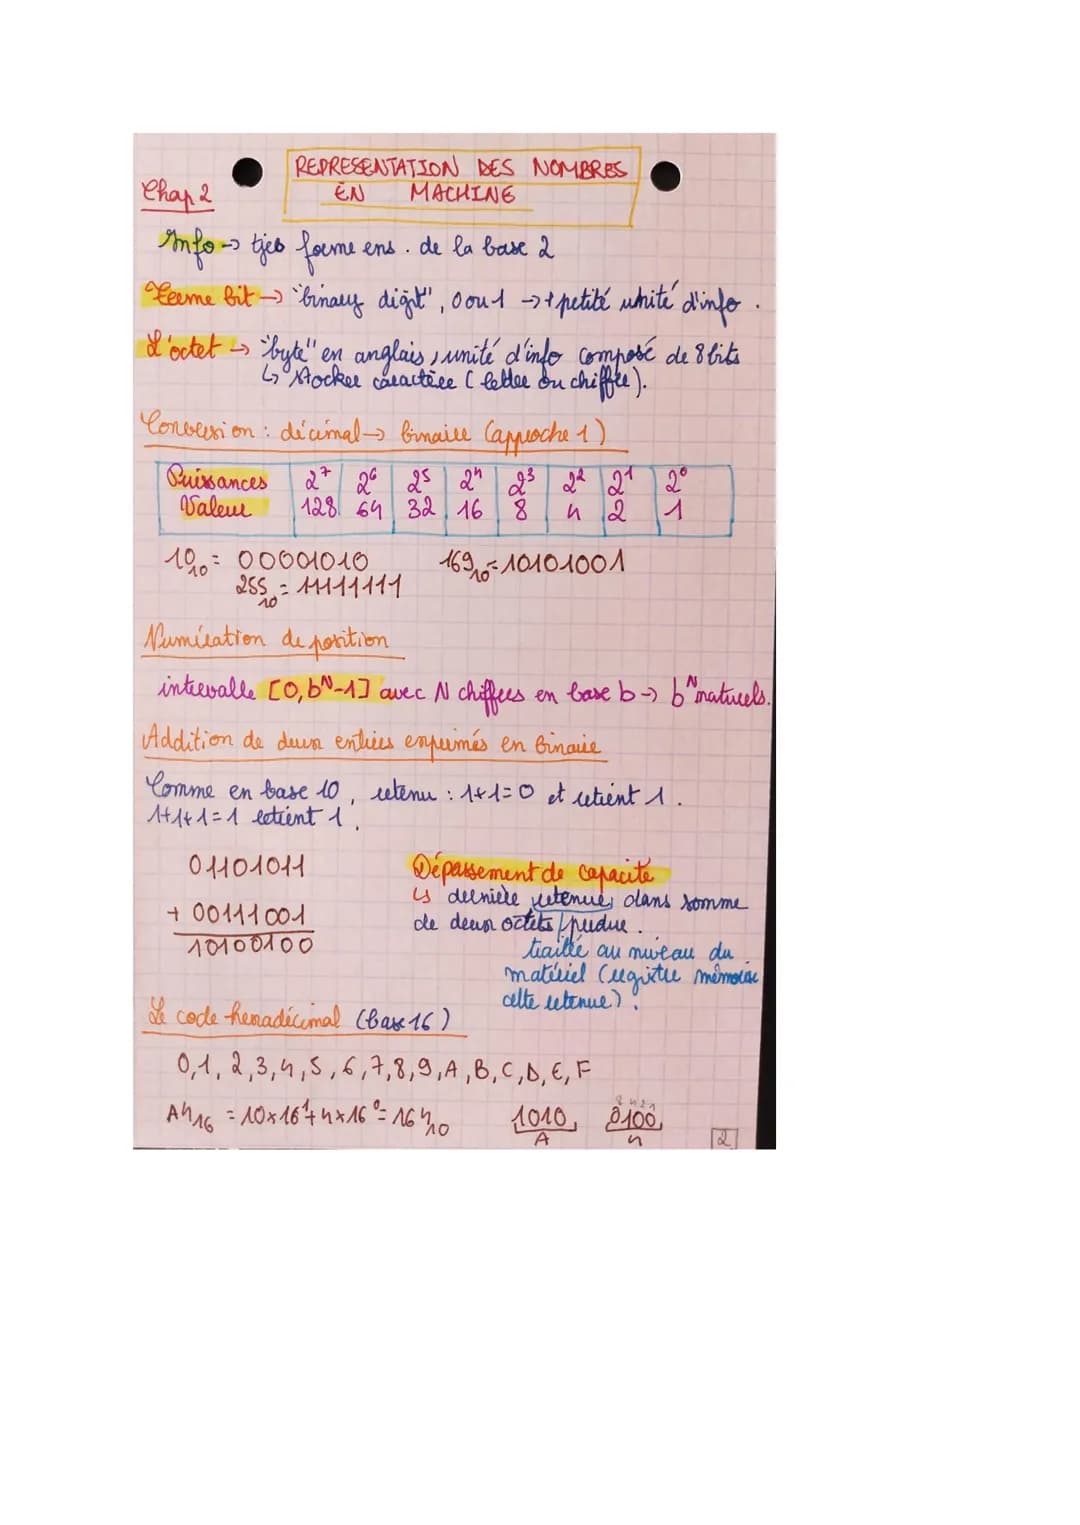 REPRESENTATION DES NOMBRES
EN MACHINE
Chap 2
Info → tjrs forme ens. de la base 2
Terme bit → "binary digit", 0 ou 1 → + petite unité d'info.
L'octet → "byte" en anglais, unité d'info composé de 8 bits
↳ stocker caractère (lettre ou chiffre).
Conversion : décimal → binaire (approche 1)
Puissances 2⁷ 2⁶ 2⁵ 2⁴ 2³ 2² 2¹ 2⁰
Valeur 128 64 32 16 8 4 2 1
10₁₀ = 00001010 169₁₀ = 10101001
255₁₀ = 11111111
Numération de position
intervalle [0, bᴺ-1] avec N chiffres en base b → bᴺ naturels.
Addition de deux entiers exprimés en binaire
Comme en base 10, retenu : 1+1=0 et retient 1.
1+1+1=1 retient 1.
01101011
+ 00111001
10100100
Dépassement de capacité
↳ dernière retenue dans somme
de deux octets perdue.
traité au niveau du
matériel (registre mémorise
cette retenue).
Le code hexadécimal (base 16)
0,1,2,3,4,5,6,7,8,9,A,B,C,D,E,F
A4₁₆ = 10×16¹+4×16⁰=164₁₀
8421
1010 0100
A 4
2